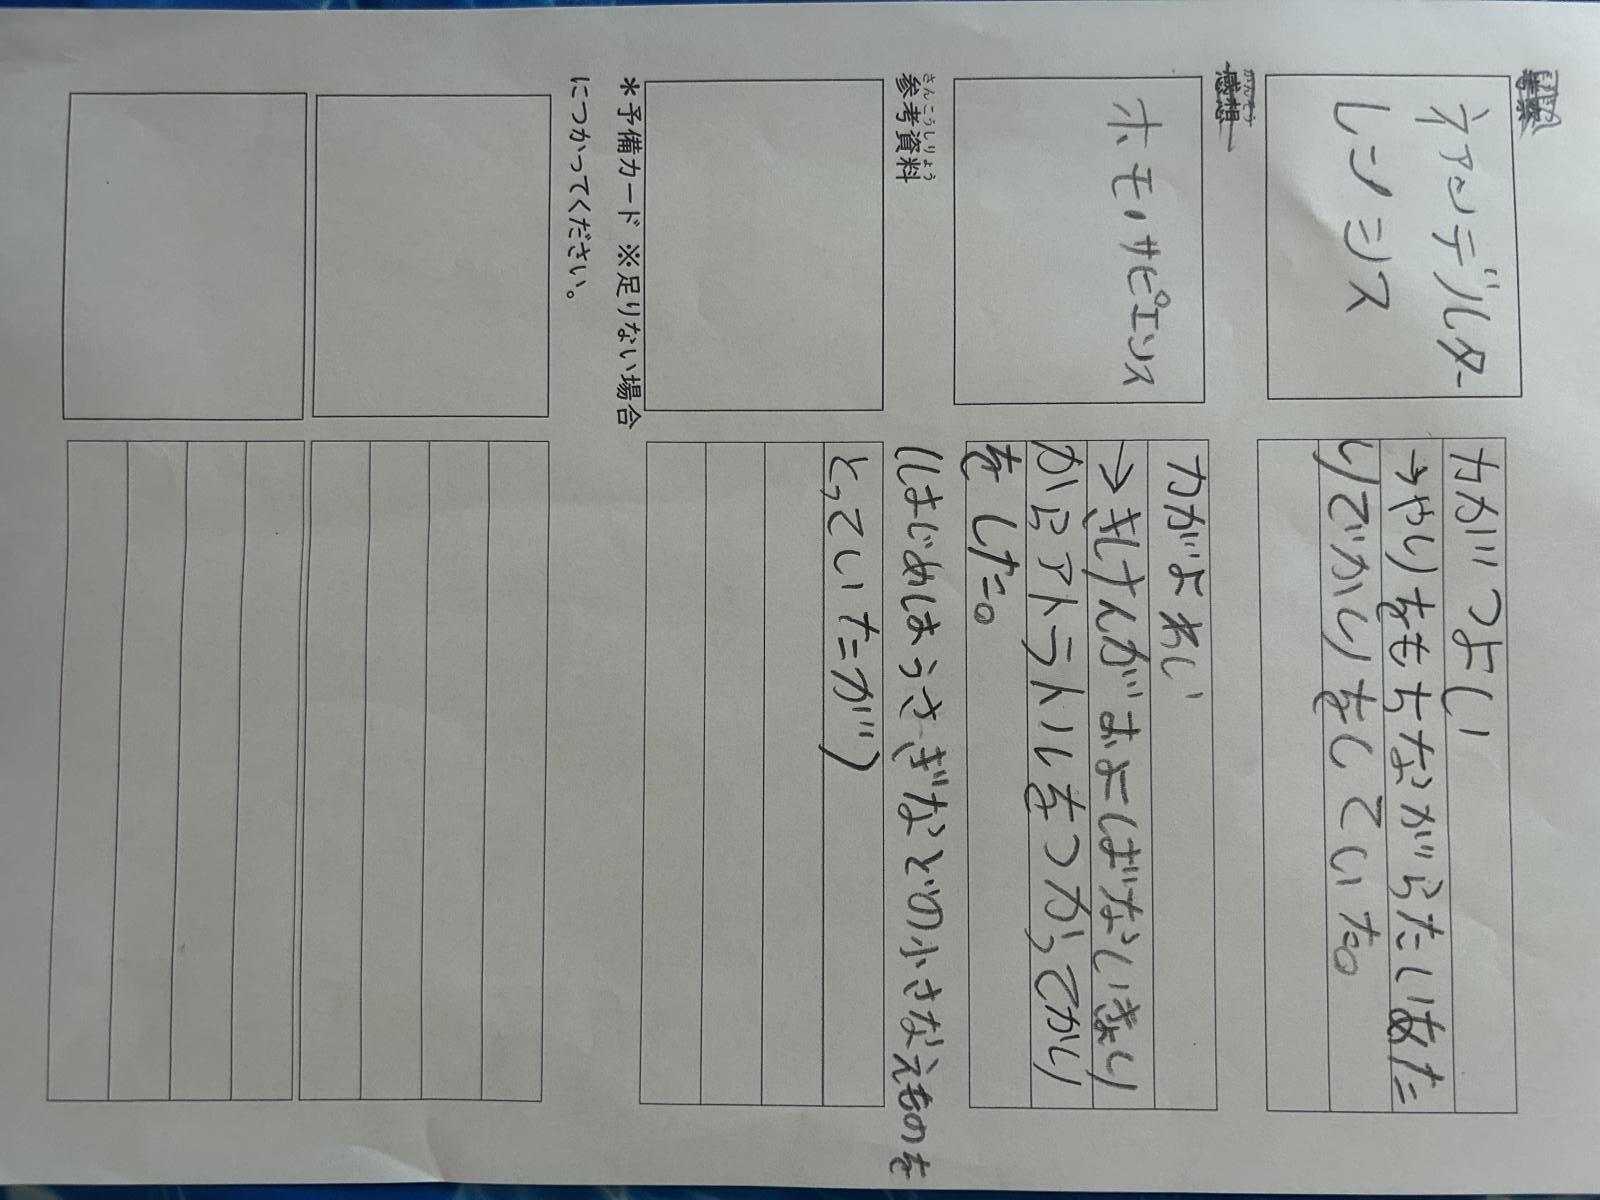 考察
ネアンデルター
レンシス
力がつよい
→やりをもちながらたいあた
りでかりをしていた。
かんそう
感想
ホモ・サピエンス
力がよわい
→きけんがおよばないきょり
からアトラトルをつかってかり
をした。
さんこうしりょう
参考資料
(はじめはうさぎなどの小さなえものを
とっていたが)
＊予備カード ※足りない場合
につかってください。